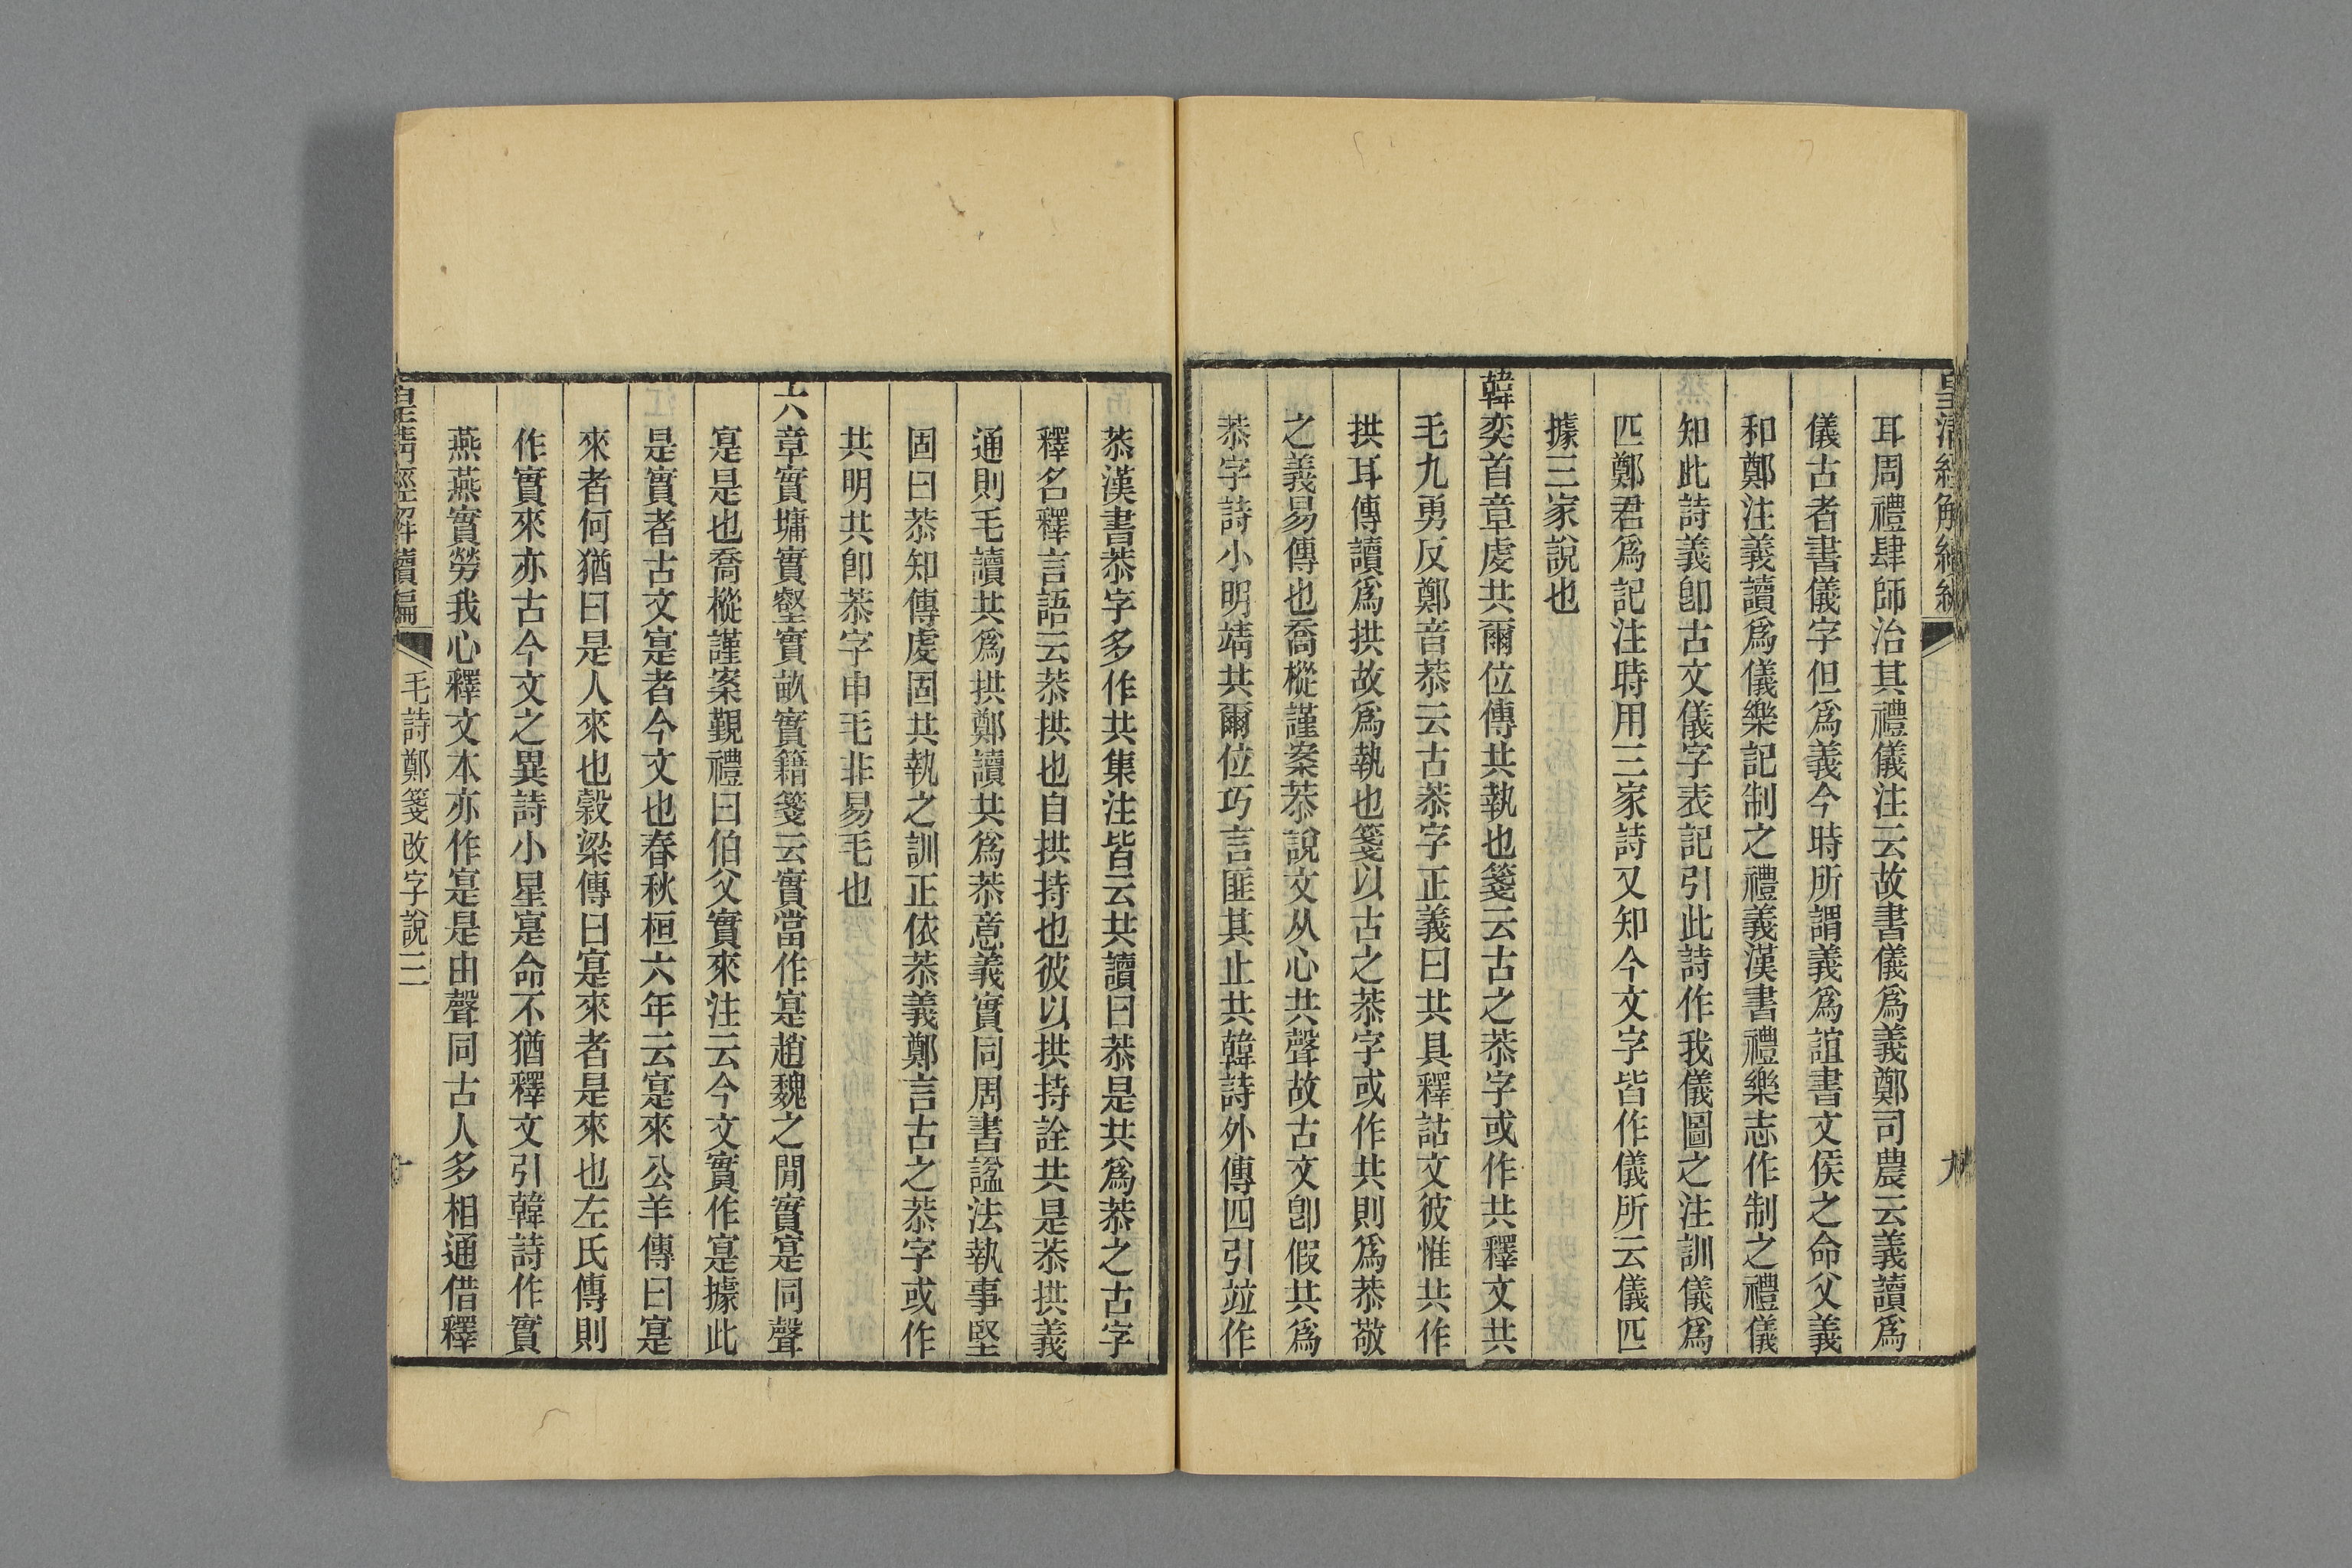 皇清經解續編
九
耳周禮肆師治其禮儀注云故書儀爲義鄭司農云義讀爲
儀古者書儀字但爲義今時所謂義爲誼書文侯之命父義
和鄭注義讀爲儀樂記制之禮義漢書禮樂志作制之禮儀
知此詩義卽古文儀字表記引此詩作我儀圖之注訓儀爲
匹鄭君爲記注時用三家詩又知今文字皆作儀所云儀匹
據三家說也
韓奕首章虔共爾位傳共執也箋云古之恭字或作共釋文共
毛九勇反鄭音恭云古恭字正義曰共具釋詁文彼惟共作
拱耳傳讀爲拱故爲執也箋以古之恭字或作共則爲恭敬
之義易傳也喬樅謹案恭說文从心共聲故古文卽假共爲
恭字詩小明靖共爾位巧言匪其止共韓詩外傳四引竝作
恭漢書恭字多作共集注皆云共讀曰恭是共爲恭之古字
釋名釋言語云恭拱也自拱持也彼以拱持詮共是恭拱義
通則毛讀共爲拱鄭讀共爲恭意義實同周書諡法執事堅
固曰恭知傳虔固共執之訓正依恭義鄭言古之恭字或作
共明共卽恭字申毛非易毛也
六章實墉實壑實畝實籍箋云實當作寔趙魏之閒實寔同聲
寔是也喬樅謹案覲禮曰伯父實來注云今文實作寔據此
是實者古文寔者今文也春秋桓六年云寔來公羊傳曰寔
來者何猶曰是人來也穀梁傳曰寔來者是來也左氏傳則
作實來亦古今文之異詩小星寔命不猶釋文引韓詩作實
燕燕實勞我心釋文本亦作寔是由聲同古人多相通借釋
皇淸經解續編
毛詩鄭箋改字說三
十